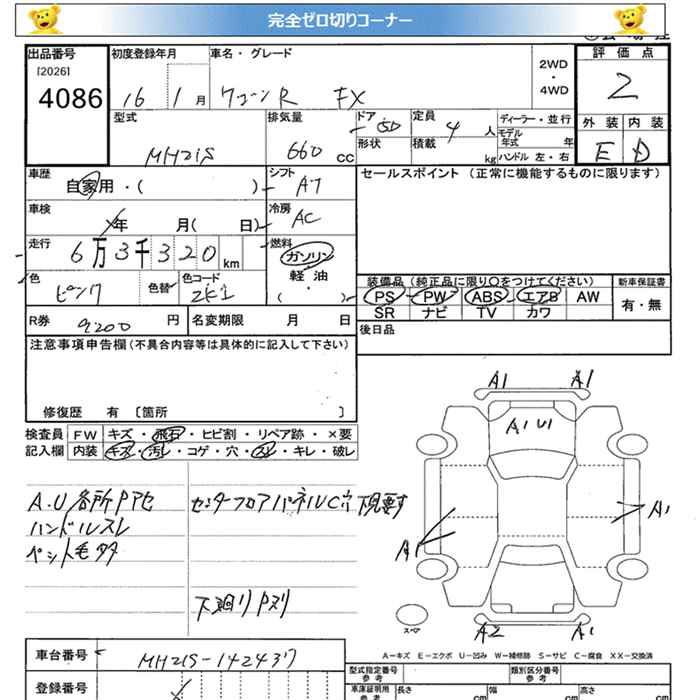 完全ゼロ切りコーナー
出品番号
[2026]
4086
初度登録年月
16 1 月
車名・グレード
ワゴンR FX
2WD
・
4WD
評価点
2
外装 内装
E D
型式
MH21S
排気量
660 CC
ドア
5D
形状
定員
4 人
積載
kg
ディーラー・並行
モデル
年式 年
ハンドル 左・右
車歴
自家用・( )
シフト
AT
セールスポイント (正常に機能するものに限ります)
車検
年 月( 日)
冷房
AC
走行
6万3千320km
燃料
ガソリン
軽油
( ・ )
色
ピンク
色替
色コード
装備品 (純正品に限り〇をつけてください)
PS PW ABS エアB AW
SR ナビ TV カワ
新車保証書
有・無
R券 9200 円
名変期限 月 日
後日品
注意事項申告欄 (不具合内容等は具体的に記入して下さい)
修復歴 有 〔箇所 〕
検査員
記入欄
FW キズ・飛石・ヒビ割・リペア跡・×要
内装 キズ・汚レ・コゲ・穴・スレ・キレ・破レ
A.U各所Pアセ
ハンドルスレ
ペット毛タタ
センターフロアパネルC穴 下見要す
下廻りPヌリ
A1 A1
A1 U1
A1
A1
A2 A1
スペア
A−キズ E−エクボ U−凹み W−補修跡 S−サビ C−腐食 XX−交換済
車台番号 MH21S-142437
登録番号
型式指定番号
参考
類別区分番号
参考
車庫証明用
参考
長さ cm
幅 cm
高さ cm